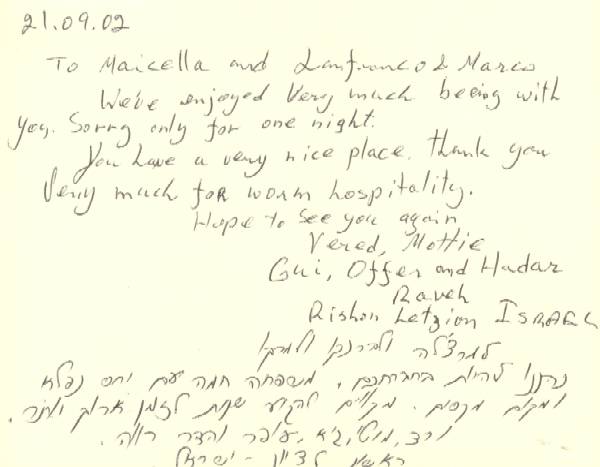 21.09.02
To Maicella and Lanfranco & Marco
We've enjoyed Very much beeing with
you. Sorry only for one night.
You have a very nice place. thank you
Very much for worm hospitality.
Hope to see you again
Vered, Mottie
Gui, Offer and Hadar
Raveh
Rishon Letzion ISRAEL
למרצ'לה ולפרנקו ולמרקו
נהננו להיות בחברתכם. משפחה חמה עם יחס נפלא
ומקום מקסים. מקווים להגיע שנית לזמן ארוך יותר.
ורד, מוטי, גיא, עופר והדר רווה.
ראשון לציון - ישראל